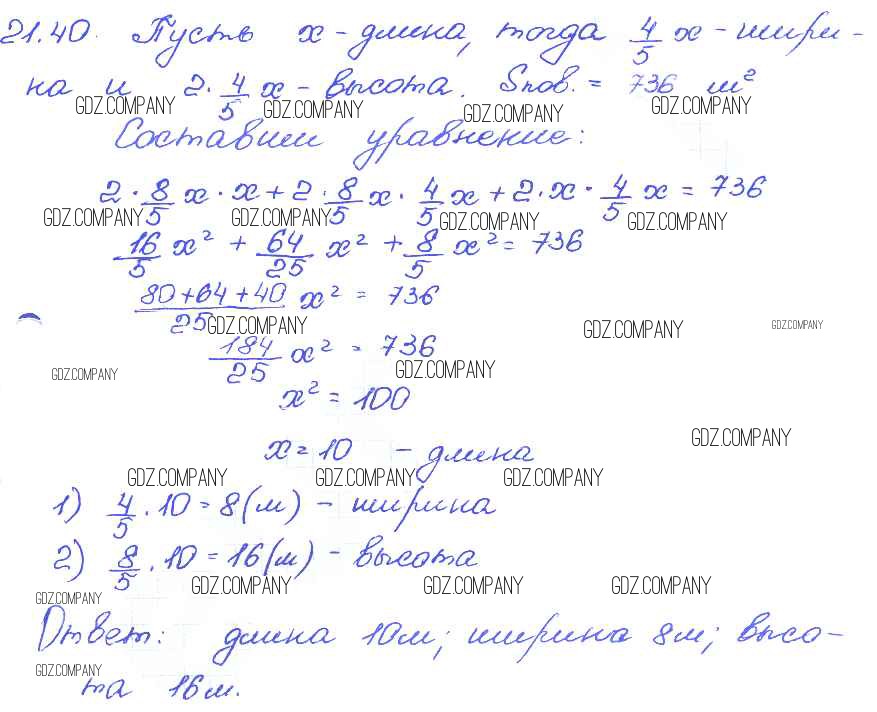 21.40. Пусть x - длина, тогда 4/5 x - шири-
на и 2 · 4/5 x - высота. Sпов. = 736 м²
GDZ.COMPANY GDZ.COMPANY GDZ.COMPANY GDZ.COMPANY
Составим уравнение:
2 · 8/5 x · x + 2 · 8/5 x · 4/5 x + 2 · x · 4/5 x = 736
GDZ.COMPANY GDZ.COMPANY GDZ.COMPANY GDZ.COMPANY
16/5 x² + 64/25 x² + 8/5 x² = 736
80+64+40/25 x² = 736
GDZ.COMPANY GDZ.COMPANY GDZ.COMPANY
184/25 x² = 736
GDZ.COMPANY GDZ.COMPANY
x² = 100
GDZ.COMPANY
x = 10 - длина
GDZ.COMPANY GDZ.COMPANY GDZ.COMPANY
1) 4/5 · 10 = 8 (м) - ширина
2) 8/5 · 10 = 16 (м) - высота
GDZ.COMPANY GDZ.COMPANY GDZ.COMPANY
GDZ.COMPANY
Ответ: длина 10м; ширина 8м; высо-
GDZ.COMPANY
та 16м.